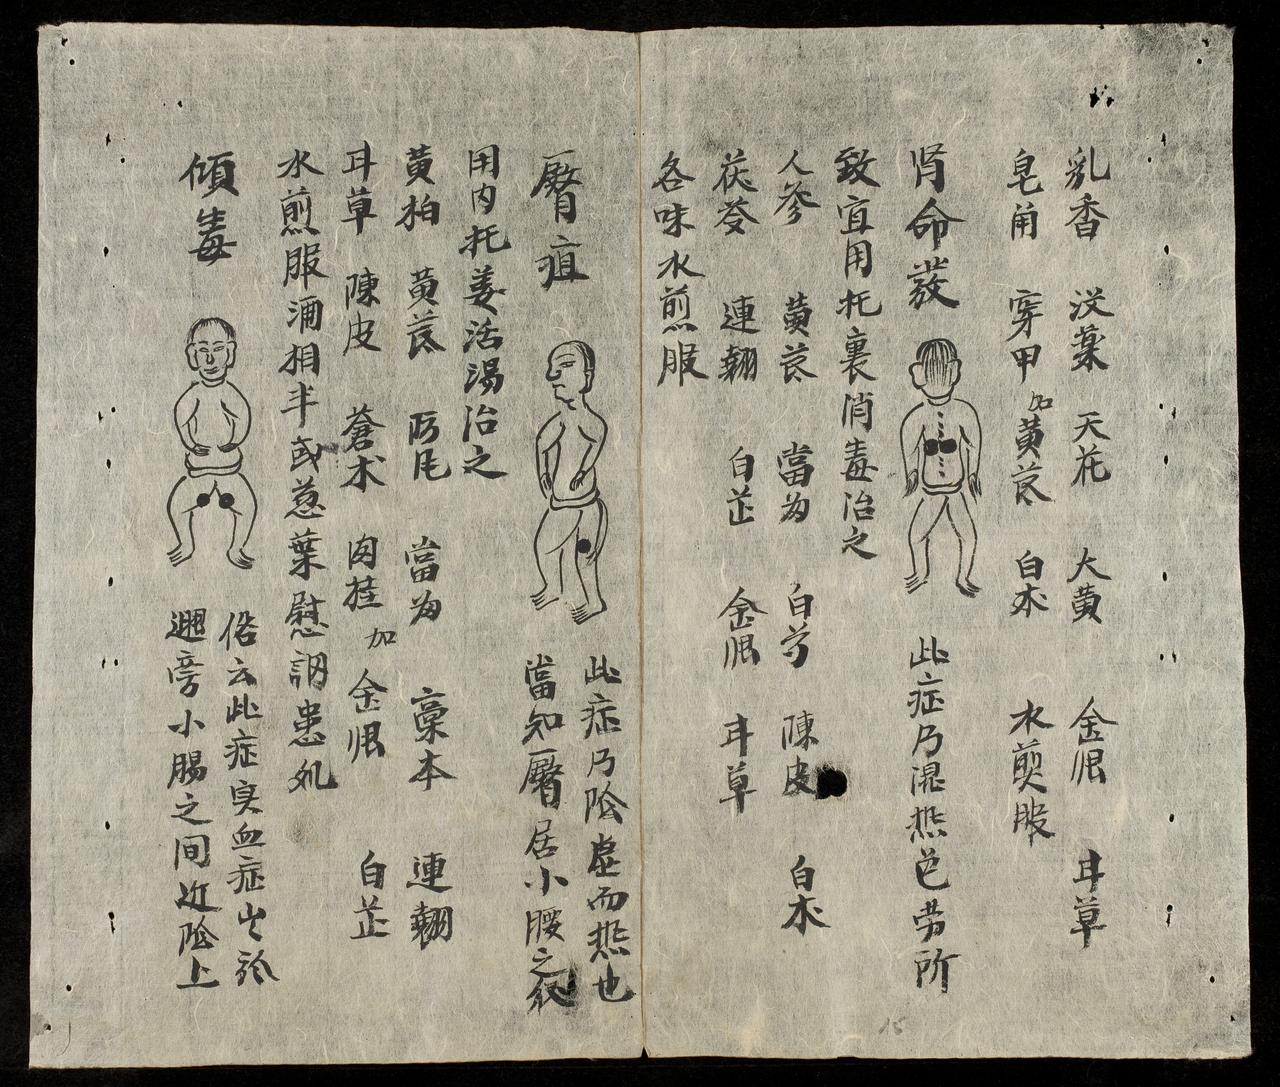 乳香 没藥 天花 大黄 金艮 甘草
皂角 穿甲 加黄芪 白术 水煎服
肾命發
此症乃湿热色劳所
致宜用托裏消毒治之
人參 黄芪 當为 白芍 陳皮 白术
茯苓 連翹 白芷 金艮 甘草
各味水煎服
臀疽
此症乃陰虚而热也
當知臀居小腰之
用内托姜活湯治之
黄柏 黄芪 防 當为 藁本 連翹
甘草 陳皮 蒼术 肉桂 加金艮 白芷
水煎服酒相半或葱葉慰調患処
傾毒
俗云此症寔血症出於
邇旁小腸之间近陰上
15